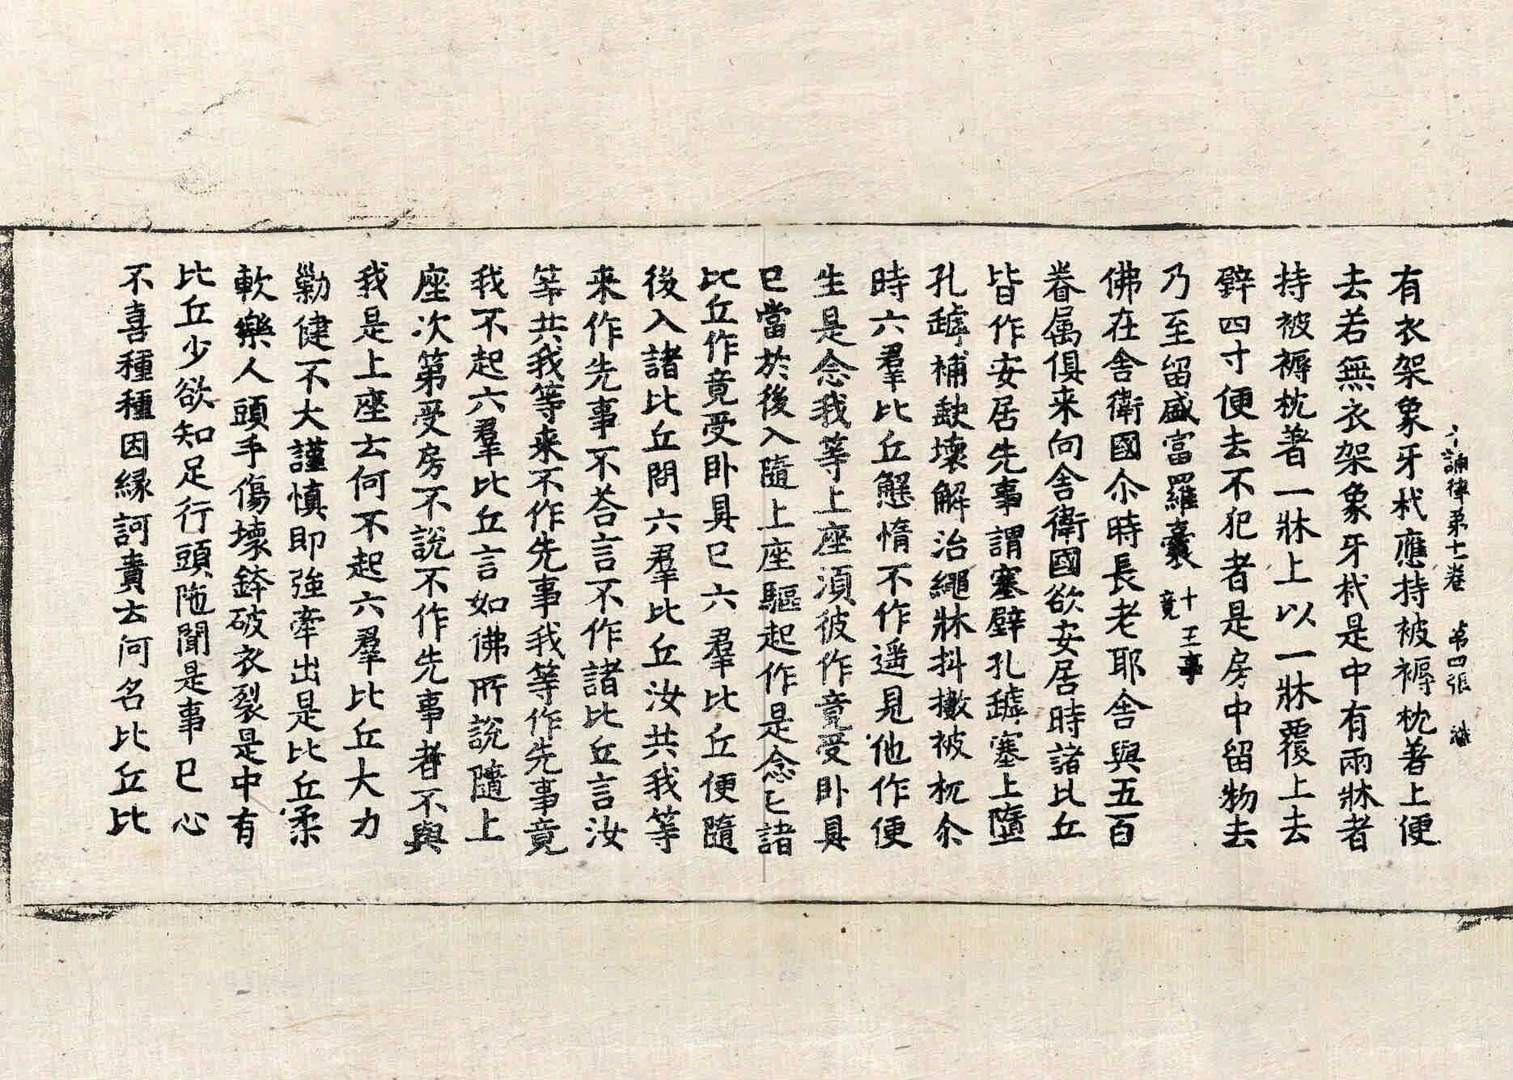 十誦律第十卷 第四張 滋
有衣架象牙杙應持被褥枕著上便
去若無衣架象牙杙是中有兩牀者
持被褥枕著一牀上以一牀覆上去
壁四寸便去不犯者是房中留物去
乃至留盛富羅囊 十五事竟
佛在舍衛國尒時長老耶舍與五百
眷属俱来向舍衛國欲安居時諸比丘
皆作安居先事謂塞壁孔罅塞上墮
孔罅補缺壞解治繩牀抖擻被枕尒
時六羣比丘懈惰不作遥見他作便
生是念我等上座湏彼作竟受卧具
已當於後入隨上座驅起作是念已諸
比丘作竟受卧具已六羣比丘便隨
後入諸比丘問六羣比丘汝共我等
来作先事不荅言不作諸比丘言汝
等共我等来不作先事我等作先事竟
我不起六羣比丘言如佛所說隨上
座次第受房不說不作先事者不與
我是上座云何不起六羣比丘大力
勦健不大謹慎即強牽出是比丘柔
軟樂人頭手傷壞鉢破衣裂是中有
比丘少欲知足行頭陁聞是事已心
不喜種種因緣訶責云何名比丘比